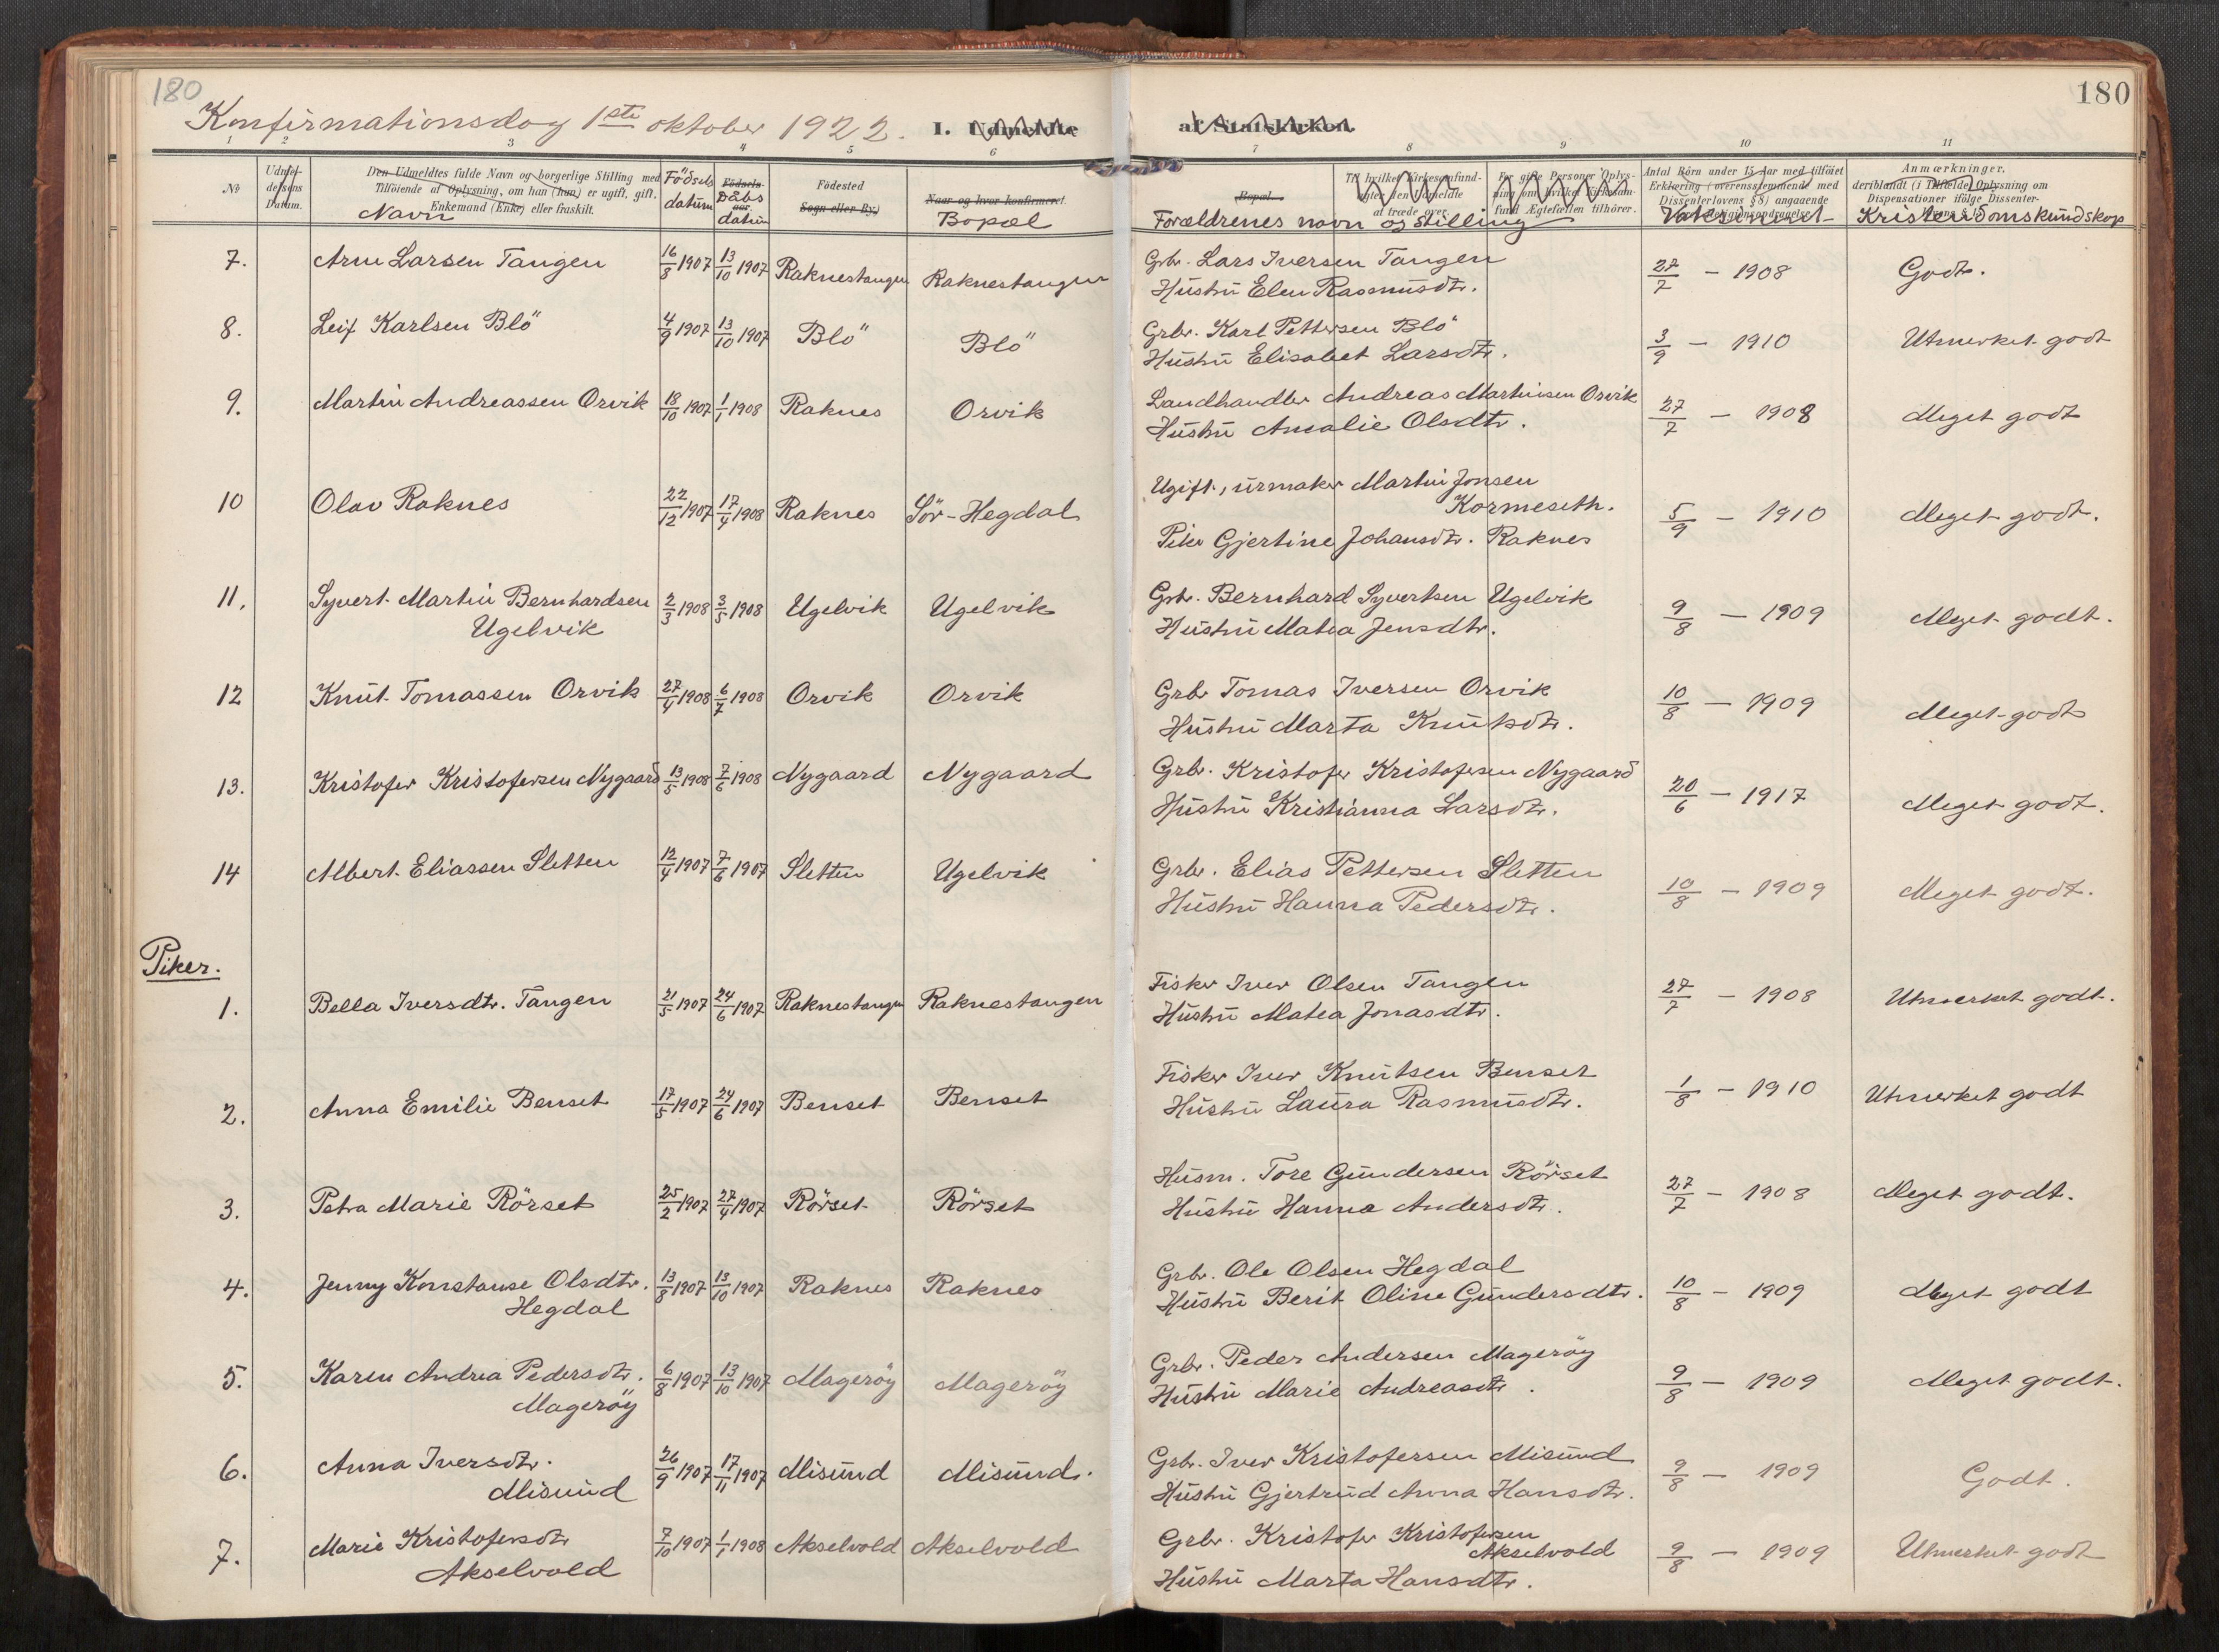 180
180
Konfirmationsdag 1ste oktober 1922.
I. Udmeldte af Statskirken.
1 2 3 4 5 6 7 8 9 10 11
No
Udmeldelsens Datum.
Den Udmeldtes fulde Navn og borgerlige Stilling med Tilföiende af Oplysning, om han (hun) er ugift, gift, Enkemand (Enke) eller fraskilt.
Navn
Födsels datum
Födsels- aar.
Dåbs datum
Födested
Sogn eller By.)
Naar og hvor konfirmeret.
Bopæl
Bopæl.
Til hvilket Kirkesamfund agter den Udmeldte at træde over.
For gifte Personer Oplysning om hvilket Kirkesamfund Ægtefællen tilhörer.
Forældrenes navn og stilling
Antal Börn under 15 Aar med tilföiet Erklæring i overensstemmende med Dissenterlovens § 8) angaaende
Vaksineret
Anmærkninger.
deriblandt (i Tilfælde) Oplysning om Dispensationer ifölge Dissenter-
Kristendomskundskap
7. Arne Larsen Tangen 16/8 1907 13/10 1907 Raknestangen Raknestangen Grbr. Lars Iversen Tangen 27/7 - 1908 Godt.
Hustru Elen Rasmusdtr.
8. Leif Karlsen Blö 4/9 1907 13/10 1907 Blö Blö Grbr. Karl Pettersen Blö 3/9 - 1910 Utmerket godt
Hustru Elisabet Larsdtr.
9. Martin Andreassen Orvik 18/10 1907 1/1 1908 Raknes Orvik Landhandler Andreas Martinsen Orvik 27/7 - 1908 Meget godt
Hustru Amalie Olsdtr.
10 Olav Raknes 22/12 1907 17/4 1908 Raknes Sör-Hegdal Ugift, urmaker Martin Jonsen
Kormeseth. 5/9 - 1910 Meget godt.
Pike Gjertine Johansdtr. Raknes
11. Syvert Martin Bernhardsen 2/3 1908 3/5 1908 Ugelvik Ugelvik Grbr. Bernhard Syvertsen Ugelvik 9/8 - 1909 Meget godt.
Ugelvik Hustru Matea Jensdtr.
12 Knut Tomassen Orvik 27/4 1908 6/7 1908 Orvik Orvik Grbr Tomas Iversen Orvik 10/8 - 1909 Meget godt
Hustru Marta Knutsdtr.
13. Kristofer Kristofersen Nygaard 13/5 1908 7/6 1908 Nygaard Nygaard Grbr. Kristofer Kristofersen Nygaard 20/6 - 1917 Meget godt.
Hustru Kristianna Larsdtr.
14 Albert Eliassen Sletten 12/4 1907 7/6 1907 Sletten Ugelvik Grbr. Elias Pettersen Sletten 10/8 - 1909 Meget godt.
Hustru Hanna Pedersdtr.
Piker.
1. Bella Iversdtr. Tangen 21/5 1907 24/6 1907 Raknestangen Raknestangen Fisker Iver Olsen Tangen 27/7 - 1908 Utmerket godt.
Hustru Matea Jonasdtr.
2. Anna Emilie Benset 17/5 1907 24/6 1907 Benset Benset Fisker Iver Knutsen Benset 1/8 - 1910 Utmerket godt
Hustru Laura Rasmusdtr.
3. Petra Marie Rörset 25/2 1907 27/4 1907 Rörset Rörset Husm. Tore Gundersen Rörset 27/7 - 1908 Meget godt.
Hustru Hanna Andersdtr.
4. Jenny Konstanse Olsdtr. 13/8 1907 13/10 1907 Raknes Raknes Grbr. Ole Olsen Hegdal 10/8 - 1909 Meget godt
Hegdal Hustru Berit Oline Gundersdtr.
5. Karen Andrea Pedersdtr. 6/8 1907 13/10 1907 Mageröy Mageröy Grbr. Peder Andersen Mageröy 9/8 - 1909 Meget godt.
Mageröy Hustru Marie Andreasdtr.
6. Anna Iversdtr. 26/9 1907 17/11 1907 Misund Misund. Grbr. Iver Kristofersen Misund 9/8 - 1909 Godt.
Misund Hustru Gjertrud Anna Hansdtr.
7. Marie Kristofersdtr 7/10 1907 1/1 1908 Akselvold Akselvold Grbr. Kristofer Kristofersen
Akselvold Akselvold 9/8 - 1909 Utmerket godt
Hustru Marta Hansdtr.